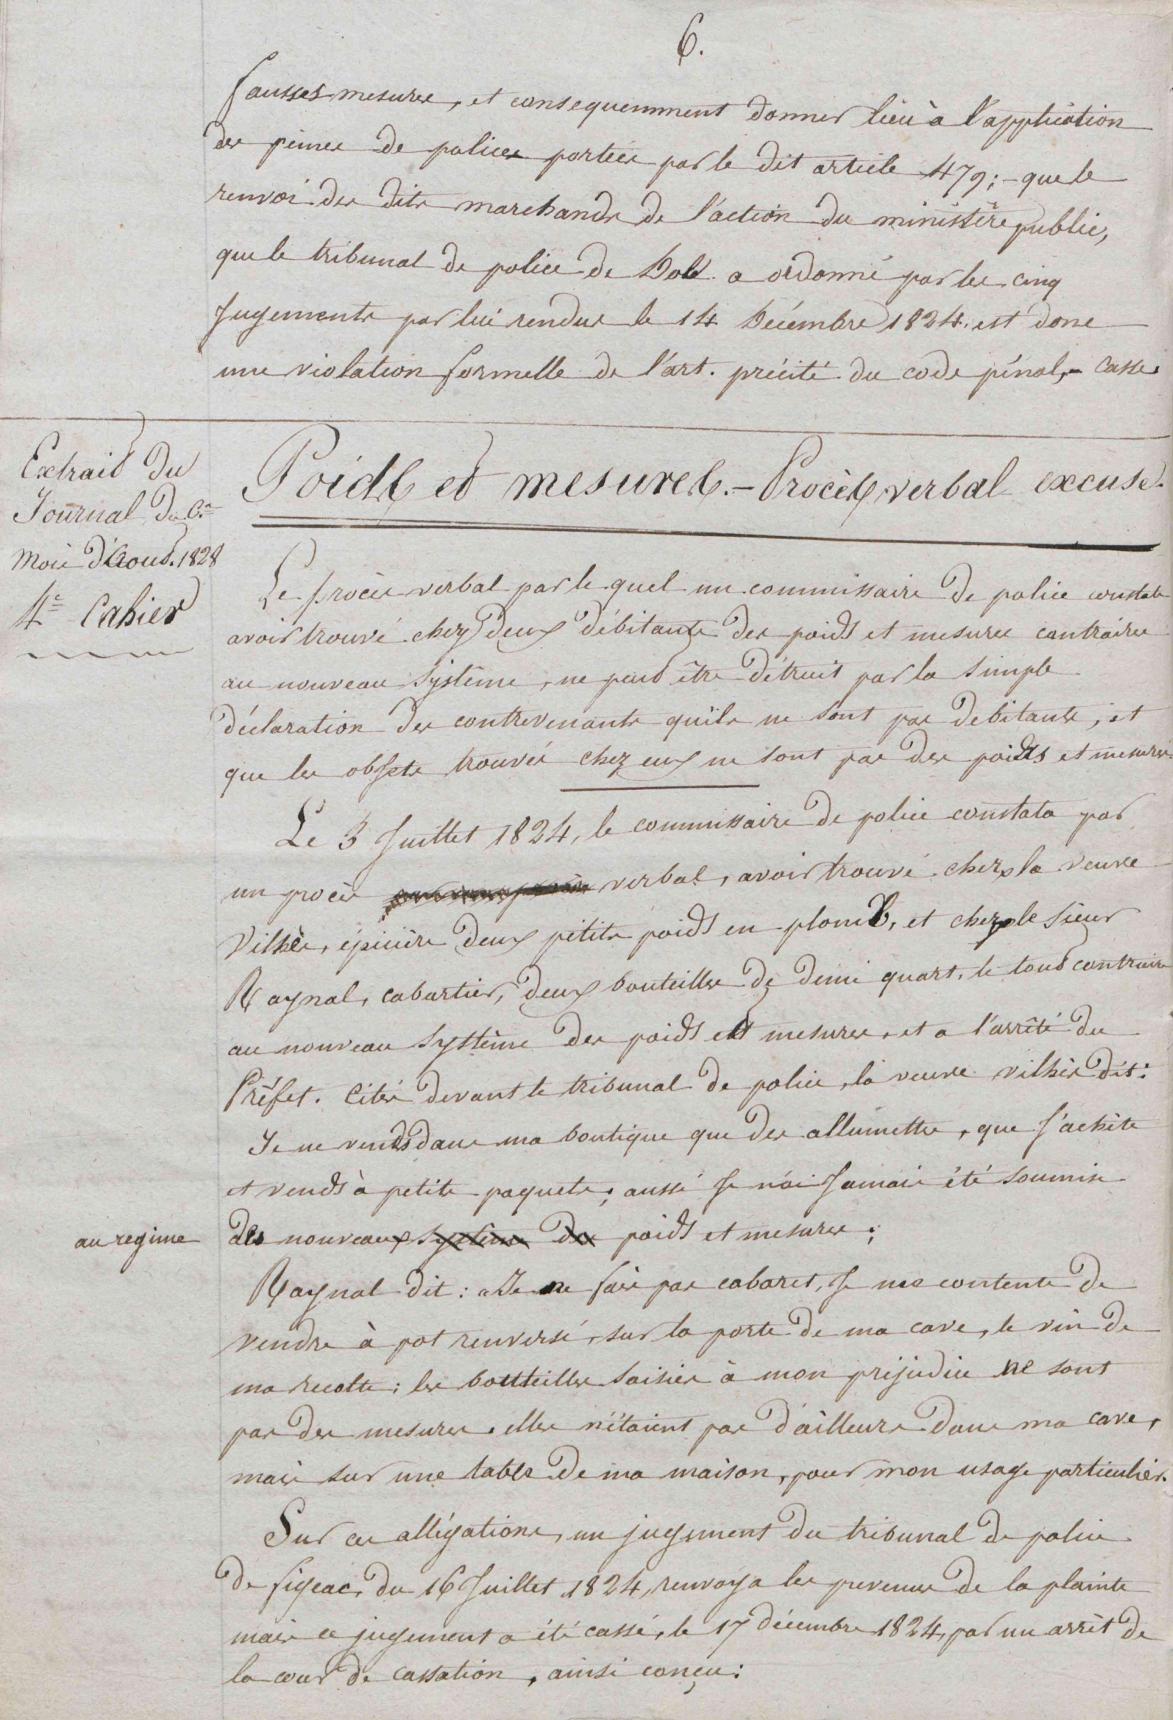 6.
fausses mesures, et consequemment donner lieu à l'application
des peines de polices portées par le dit article 479; - que le
renvoi des dits marchands de l'action du ministère public,
que le tribunal de police de Dole a ordonné par les cinq
jugements par lui rendus le 14 Décembre 1824. est donc
une violation formelle de l'art. précité du code pénal, - casse.
Extrait du
Journal du C.re
Mois d'Aout. 1828
4.e Cahier
Poids et mesures. - Procès verbal excuse.
Le procès verbal par le quel un commissaire de police constate
avoir trouvé chez deux débitants des poids et mesures contraires
au nouveau système, ne peut être détruit par la simple
déclaration des contrevenants qu'ils ne sont pas debitants, et
que les objets trouvés chez eux ne sont pas des poids et mesures
Le 3 Juillet 1824, le commissaire de police constata par
un procès verbal, avoir trouvé chez la veuve
Vilhès, épicière deux petits poids en plomb, et chez le Sieur
Raynal, cabartier, deux bouteilles de demi quart, le tout contraire
au nouveau système des poids et mesures, et a l'arrêté du
Préfet. Cités devant le tribunal de police, la veuve vilhès dit:
Je ne vends dans ma boutique que des allumettes, que j'achète
et vends à petits paquets; aussi je n'ai jamais été soumise
au regime
des nouveaux système des poids et mesures;
Raynal dit: « Je ne fais pas cabaret, je me contente de
vendre à pot renversé, sur la porte de ma cave, le vin de
ma recolte; les bouteilles saisies à mon préjudice ne sont
pas des mesures. elles n'étaient pas d'ailleurs dans ma cave,
mais sur une table de ma maison, pour mon usage particulier.
Sur ces allégations, un jugement du tribunal de police
de figeac, du 16 Juillet 1824, renvoya les prevenus de la plainte
mais ce jugement a été cassé, le 17 décembre 1824, par un arrêt de
la cour de cassation, ainsi conçu: